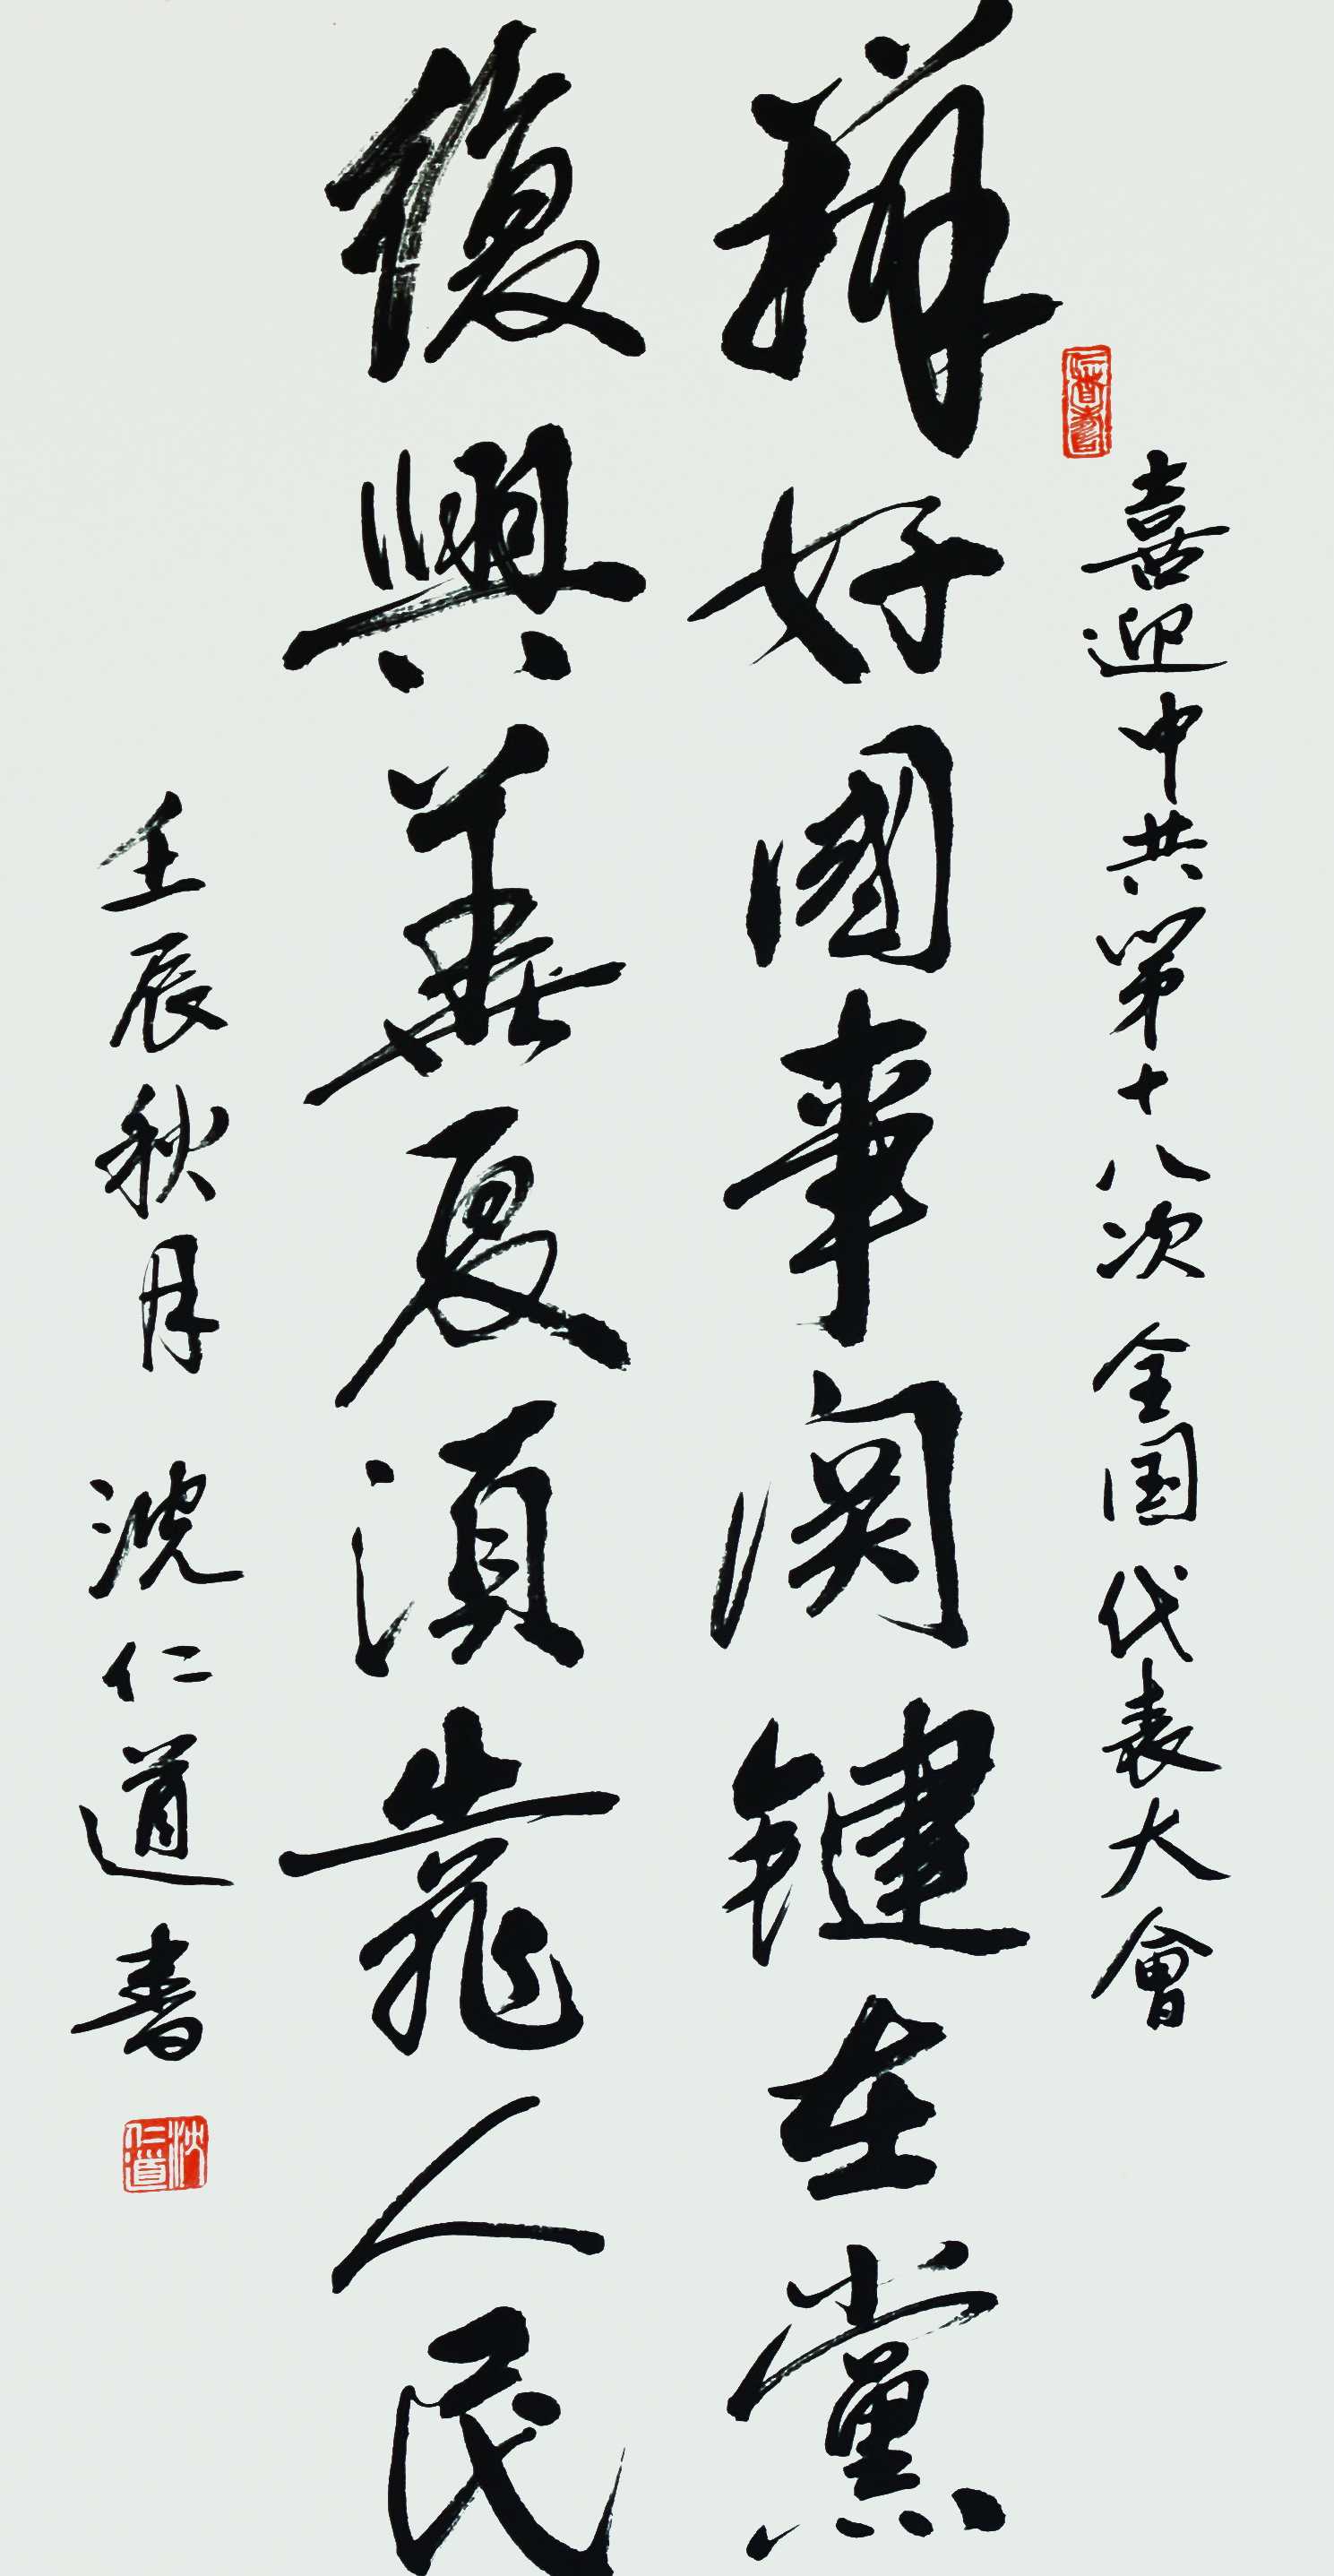 喜迎中共第十八次全国代表大會
辦好國事関键在黨
復興華夏須靠人民
壬辰秋月 沈仁道書
沈仁道